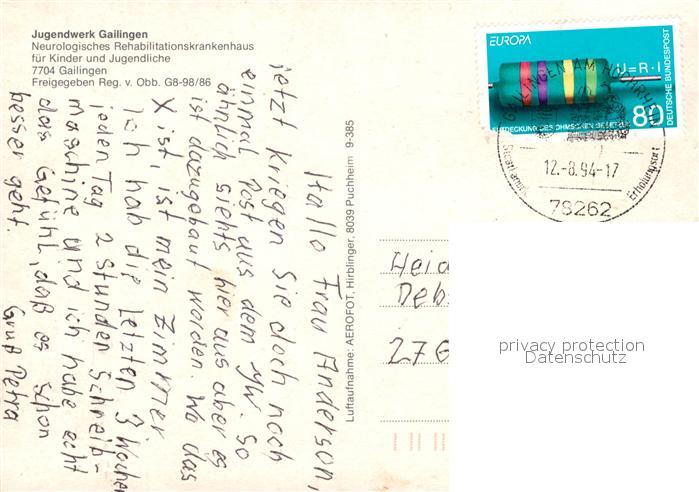 Jugendwerk Gailingen
Neurologisches Rehabilitationskrankenhaus
für Kinder und Jugendliche
7704 Gailingen
Freigegeben Reg. v. Obb. G8-98/86
Hallo Frau Anderson,
jetzt kriegen Sie doch noch
einmal Post aus dem JW. So
ähnlich siehts hier aus aber es
ist dazugebaut worden. Wo das
X ist, ist mein Zimmer.
Ich hab die letzten 3 Wochen
jeden Tag 2 Stunden Schreib-
maschine und ich habe echt
das Gefühl, daß es schon
besser geht.
Gruß Petra
Luftaufnahme: AEROFOT, Hirblinger, 8039 Puchheim 9-385
EUROPA
U=R·I
80
DEUTSCHE BUNDESPOST
ENTDECKUNG DES OHMSCHEN GESETZES
GAILINGEN AM HOCHRHEIN
12.-8.94-17
Erholungsort
78262
Heid
Deb
276
privacy protection
Datenschutz